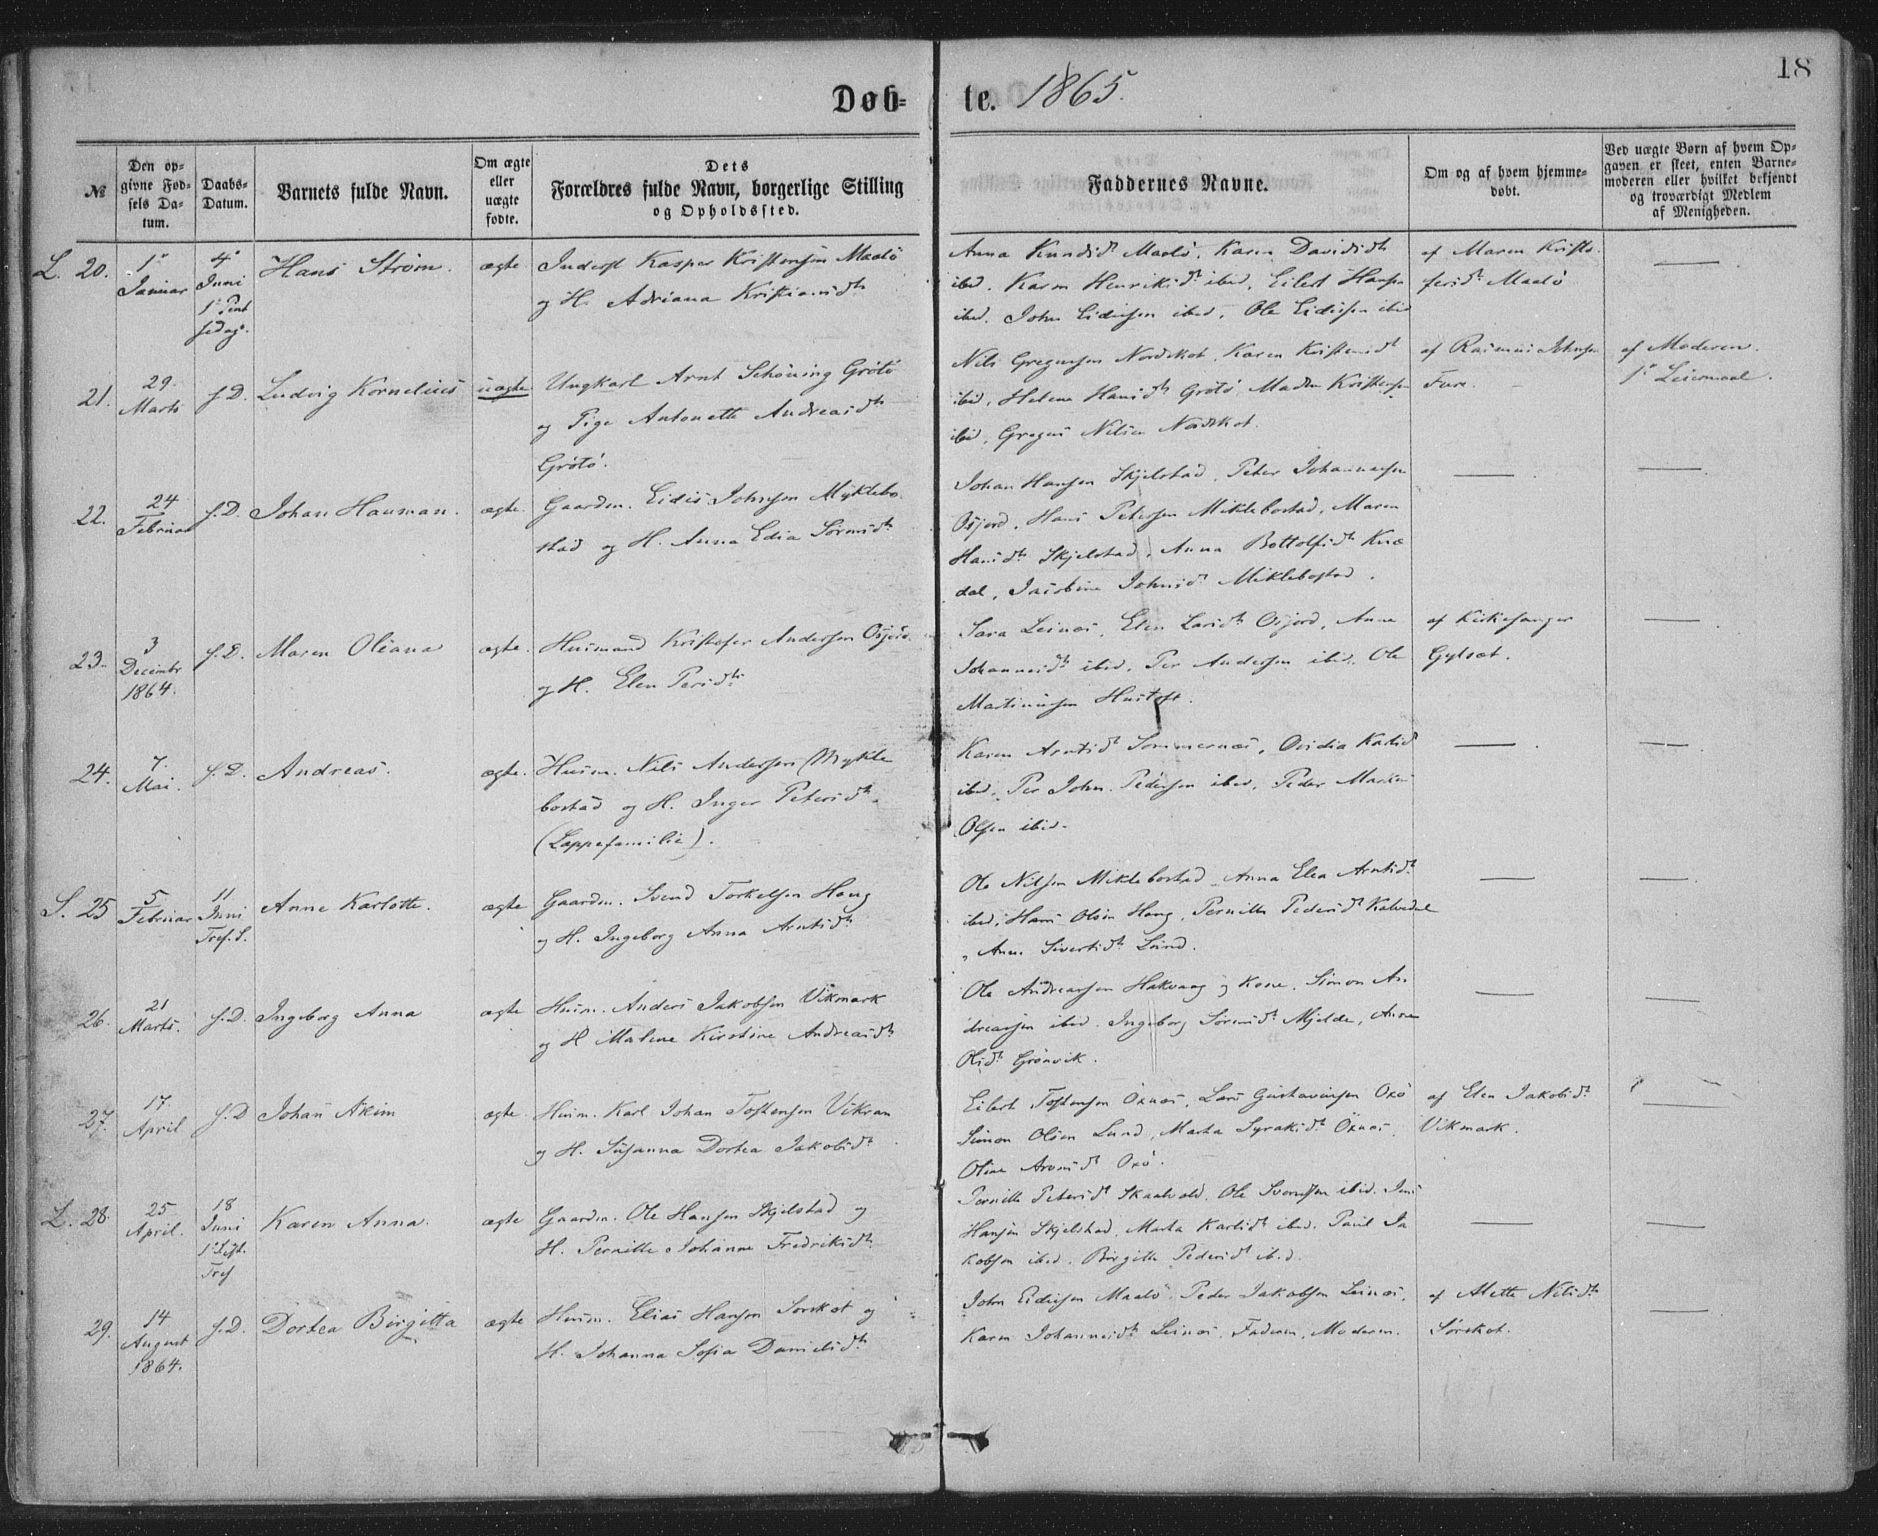 18
Døb- te. 1865.
№
Den opgivne Fødsels Datum.
Daabs-Datum.
Barnets fulde Navn.
Om ægte eller uægte fødte.
Dets Forældres fulde Navn, borgerlige Stilling og Opholdssted.
Faddernes Navne.
Om og af hvem hjemmedøbt.
Ved uægte Børn af hvem Opgaven er skeet, enten Barnemoderen eller hvilket bekjendt og troværdigt Medlem af Menigheden.
L. 20. 1ste Januar 4de Juni
Hans Strøm. ægte
Inderst Kasper Kristensen Maalø
og H. Adriana Kristiansdtr
Anna Knudsdtr Maalø, Karen Davidsdtr
ibid. Karen Henriksdtr ibid, Eilert Hansen
ibid. John Eidissen ibid, Ole Eidissen ibid
af Maren Kristo-
fersdtr Maalø
21. 29. Marts s.D. Ludvig Kornelius uægte
Ungkarl Arnt Schöning Grøtø
og Pige Antonette Andreasdtr
Grøtø.
Nils Gregussen Nordskot, Karen Kristensdtr
ibid, Helene Hansdtr Grøtø, Kristensen
ibid, Gregus Nilsen Nordskot.
af Rasmus Johnsen
Fure.
af Moderen.
1ste Leiermaal.
22. 24 Februar s.D. Johan Hauman. ægte.
Gaardm. Eidis Johnsen Myklebo-
stad og H. Anna Edia Sørensdtr
Johan Hansen Skjelstad, Peter Johannesen
Osjord, Hans Petersen Miklebostad, Maren
Hansdtr Skjelstad, Anna Bottolfsdtr Knæ
dal, Jacobine Johnsdtr Miklebostad.
23. 3 Decembr 1864. s.D. Maren Oliana ægte.
Husmand Kristofer Andersen Osjord
og H. Elen Persdtr
Sara Leines, Elen Larsdtr Osjord, Anne
Johannesdtr ibid, Per Andersen ibid, Ole
Martinussen Hustoft.
af Kirkesanger
24. 7. Mai. s.D. Andreas. ægte.
Husm. Nils Andersen Mykle
bostad og H. Inger Petersdtr
(Lappefamilie).
Karen Arntsdtr Sommernes, Ovidia Karlsd
ibid, Per John Pedersen ibid, Peder
Olsen ibid.
S. 25 5 Februar 11 Juni Tref. S.
Anne Karlotte. ægte
Gaardm. Svend Torkelsen Haug
og H. Ingeborg Anna Arntsdtr
Ole Nilsen Miklebostad, Anna Elea Arntsdtr
ibid, Hans Olsen Haug, Pernille Pedersdtr Kalvedal
, Anne Sivertsdtr Lund.
26. 21 Marts. s.D. Ingeborg Anna ægte
Husm. Anders Jakobsen Vikmark
og H Malene Kirstine Andreasdtr
Ole Andreassen Hakvaag og Kone, Simon An
dreasen ibid. Ingeborg Sørensdtr Mjelde, Anne
Olsdtr Grønvik.
27. 17. April s.D Johan Akim ægte.
Husm. Karl Johan Tostensen Vikran
og H. Susanna Dortea Jakobsdtr
Eilert Tostensen Oxnes, Lars Gustavsen Oxø
Simon Olsen Lund, Marta Oxnes,
Oline Oxø.
af Elen Jakobsdtr
Vikmark.
L. 28. 25 April. 18 Juni
Karen Anna. ægte
Gaardm. Ole Hansen Skjelstad og
H. Pernille Johanne Fredriksdtr
Pernille Petersdtr Skaalvold, Ole Svendsen ibid, Jens
Hansen Skjelstad, Marta Karlsdtr ibid. Paul Ja
kobsen ibid. Birgitte Pedersdtr ibid.
29. 14 August 1864. s.D. Dortea Birgitta ægte
Husm. Elias Hansen Sørskot og
H. Johanna Sofia Danielsdtr
John Eidissen Maalø, Peder Jakobsen Leines,
Karen Johannesdtr Leines, Faderen, Moderen.
af Alette Nilsdtr
Sørskot.